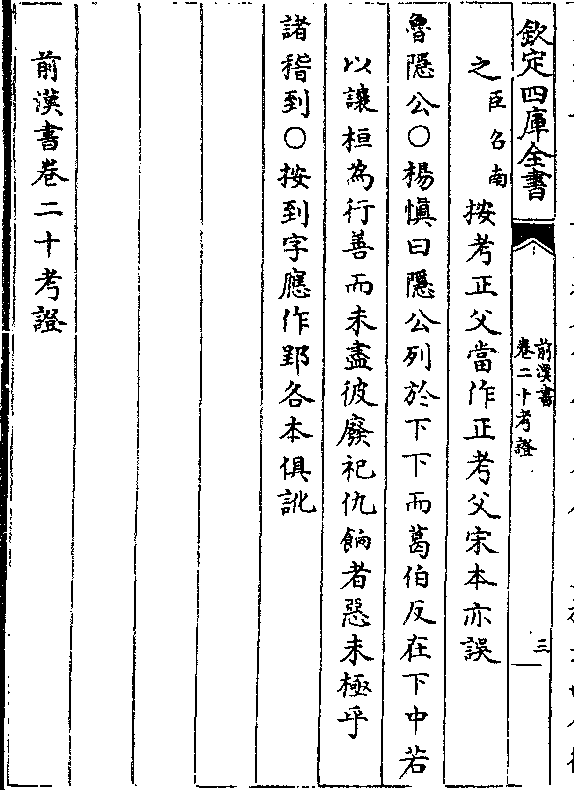 欽定四庫全書
前漢書
卷二十考證
三
之臣召南按考正父當作正考父宋本亦誤
魯隱公○楊慎曰隱公列於下下而葛伯反在下中若
以讓桓為行善而未盡彼廢祀仇餉者惡未極乎
諸稽到○按到字應作郢各本俱訛
前漢書卷二十考證